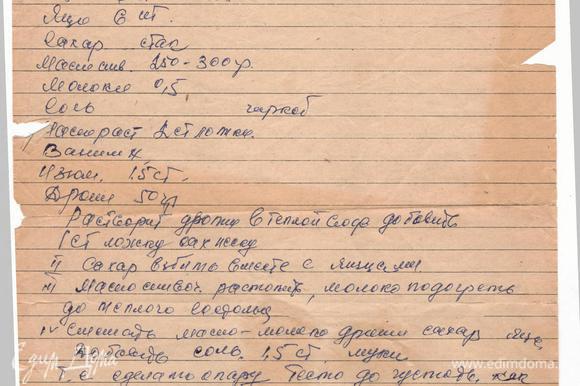 Яйцо 6 шт.
Сахар стак
Масло слив. 250-300гр.
Молоко 0,5
Соль
Масло раст 2 ст ложки.
Ванилин,
Изюм, 1,5 ст.
Дрожжи 50 гр
Растворит дрожжи в теплой сюда добавить
1 ст ложку сах песку
II Сахар взбить вместе с яйцами.
III Масло сливоч. растопить, молоко подогреть
до теплого
IV Смешать масло-молоко дрожжи сахар яйца,
добавить соль. 1,5 ст. муки
Т. е сделать опару тесто до густоты, как
Едим Дома
www.edimdoma.ru